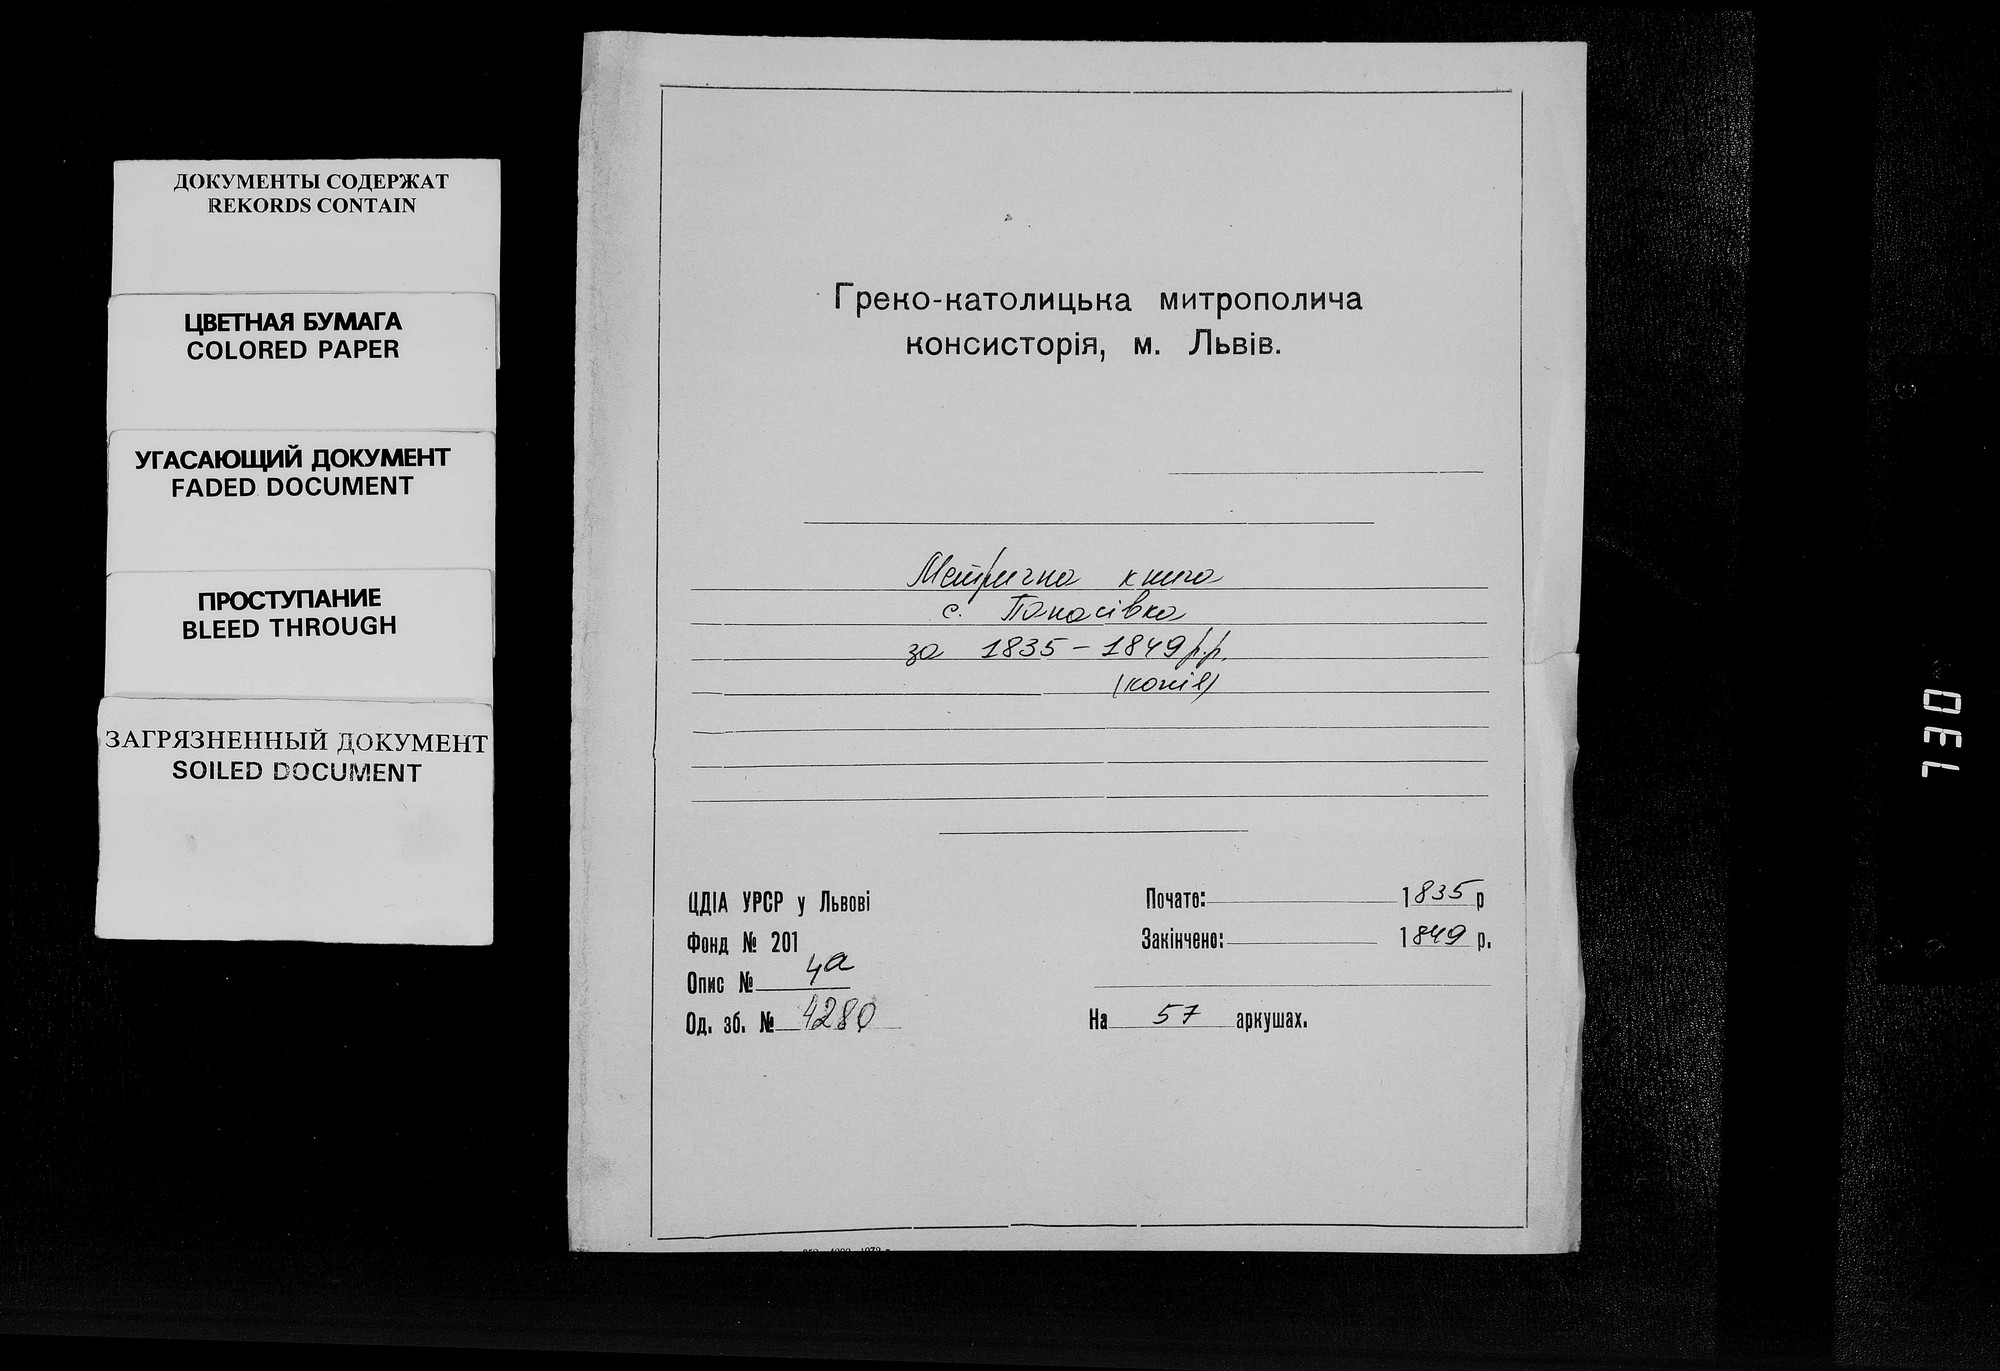 ДОКУМЕНТЫ СОДЕРЖАТ
REKORDS CONTAIN
ЦВЕТНАЯ БУМАГА
COLORED PAPER
УГАСАЮЩИЙ ДОКУМЕНТ
FADED DOCUMENT
ПРОСТУПАНИЕ
BLEED THROUGH
ЗАГРЯЗНЕННЫЙ ДОКУМЕНТ
SOILED DOCUMENT
Греко-католицька митрополича
консисторія, м. Львів.
Метрична книга
с. Панасівка
за 1835-1849 р.р.
(копія)
ЦДІА УРСР у Львові
Фонд № 201
Опис № 4а
Од. зб. № 4280
Почате: 1835 р
Закінчено: 1849 р.
На 57 аркушах.